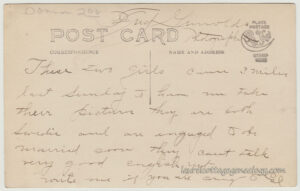 POST CARD
PLACE
POSTAGE
STAMP
HERE
CORRESPONDENCE
NAME AND ADDRESS
These two girls came 3 Miles
last Sunday to have me take
their pictures they are both
Swedie and are engaged to be
married soon they cant talk
very good english yet
write me if you are
laurelcottagegenealogy.com